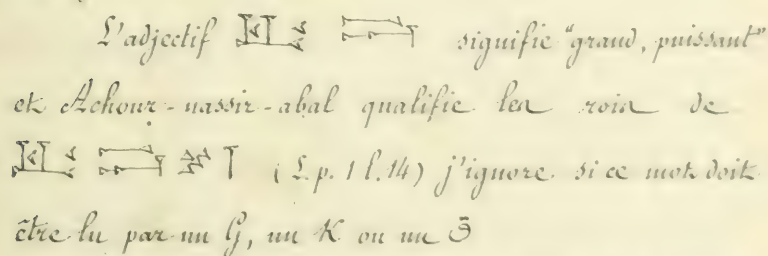 L'adjectif signifie "grand, puissant"
et Achour-nassir-abal qualifie les rois de
(L. p. 1 l. 14) j'ignore si ce mot doit
être lu par un G, un K ou un